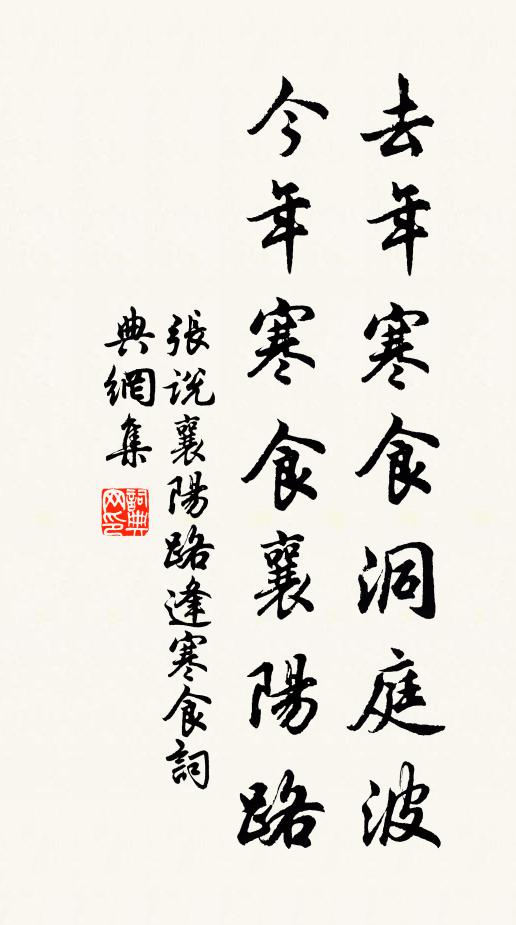 去年寒食洞庭波
今年寒食襄陽路
張説襄陽路逢寒食詞
典網集
詞典网印